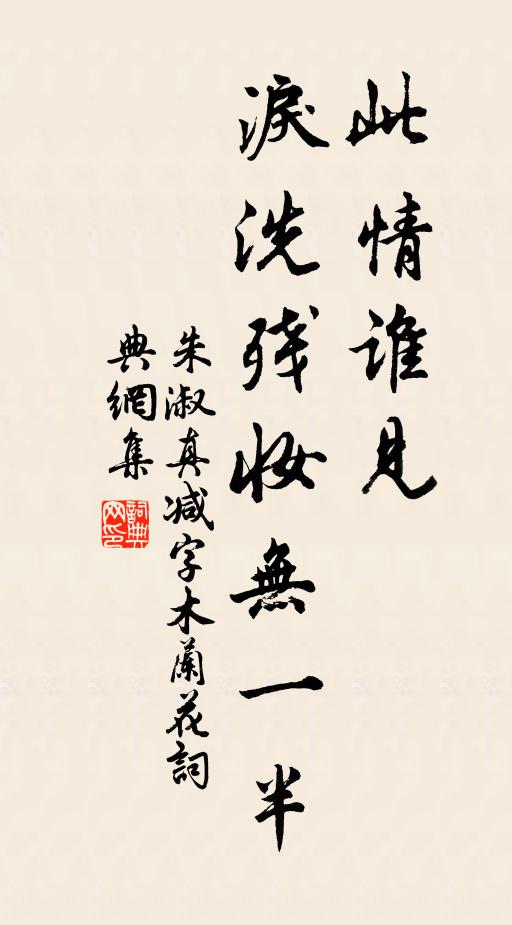 此情誰見
淚洗殘妝無一半
朱淑真減字木蘭花詞
典網集
詞典網印